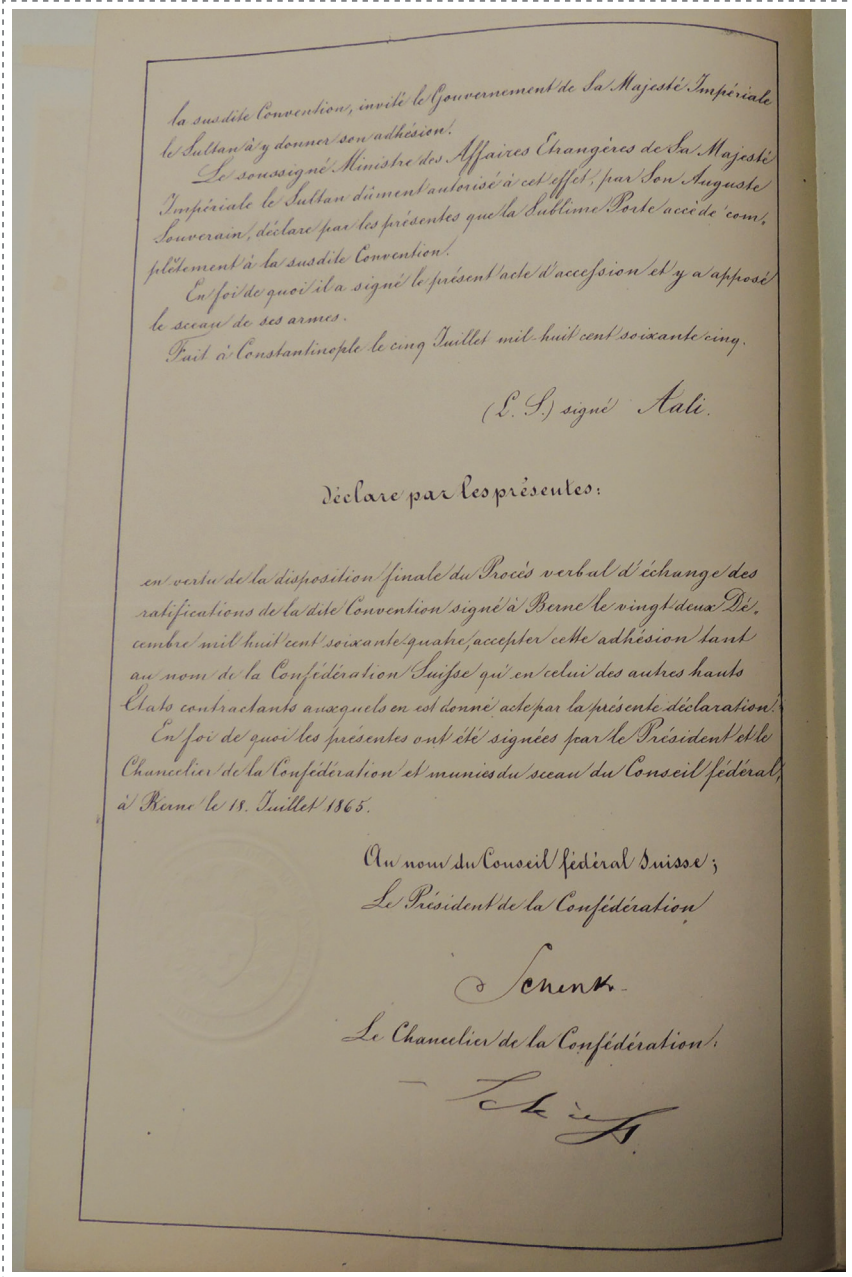 la susdite Convention, invité le Gouvernement de Sa Majesté Impériale
le Sultan à y donner son adhésion.
Le soussigné Ministre des Affaires Etrangères de Sa Majesté
Impériale le Sultan dûment autorisé à cet effet, par Son Auguste
Souverain, déclare par les présentes que la Sublime Porte accède com-
plètement à la susdite Convention.
En foi de quoi il a signé le présent acte d'accession et y a apposé
le sceau de ses armes.
Fait à Constantinople le cinq Juillet mil-huit cent soixante cinq.
(L. S.) signé Aali.
Déclare par les présentes:
en vertu de la disposition finale du Procès verbal d'échange des
ratifications de la dite Convention signé à Berne le vingt deux Dé-
cembre mil huit cent soixante quatre, accepter cette adhésion tant
au nom de la Confédération Suisse qu'en celui des autres hauts
Etats contractants auxquels en est donné acte par la présente déclaration.
En foi de quoi les présentes ont été signées par le Président et le
Chancelier de la Confédération et munies du sceau du Conseil fédéral,
à Berne le 18. Juillet 1865.
Au nom du Conseil fédéral Suisse;
Le Président de la Confédération
Schenk
Le Chancelier de la Confédération: